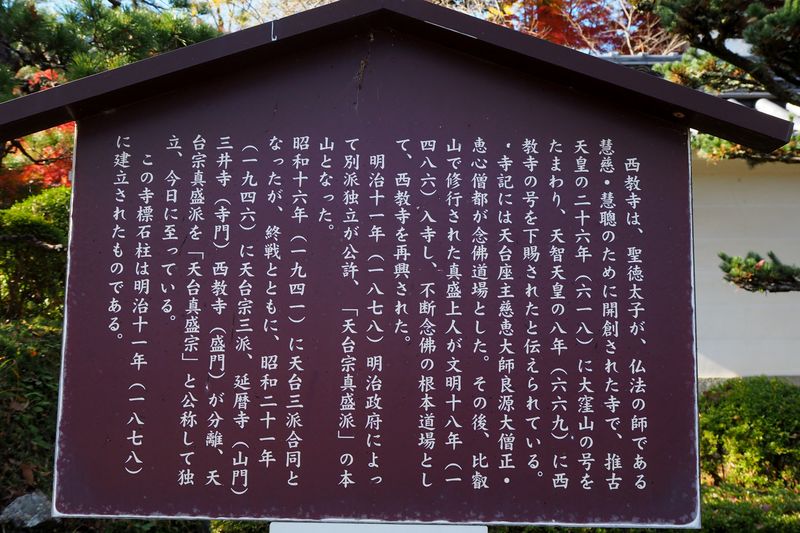 西教寺は、聖徳太子が、仏法の師である
慧慈・慧聰のために開創された寺で、推古
天皇の二十六年（六一八）に大窪山の号を
たまわり、天智天皇の八年（六六九）に西
教寺の号を下賜されたと伝えられている。
・寺記には天台座主慈恵大師良源大僧正・
恵心僧都が念佛道場とした。その後、比叡
山で修行された真盛上人が文明十八年（一
四八六）入寺し、不断念佛の根本道場とし
て、西教寺を再興された。
明治十一年（一八七八）明治政府によっ
て別派独立が公許、「天台宗真盛派」の本
山となった。
昭和十六年（一九四一）に天台三派合同と
なったが、終戦とともに、昭和二十一年
（一九四六）に天台宗三派、延暦寺（山門）
三井寺（寺門）西教寺（盛門）が分離、天
台宗真盛派を「天台真盛宗」と公称して独
立、今日に至っている。
この寺標石柱は明治十一年（一八七八）
に建立されたものである。